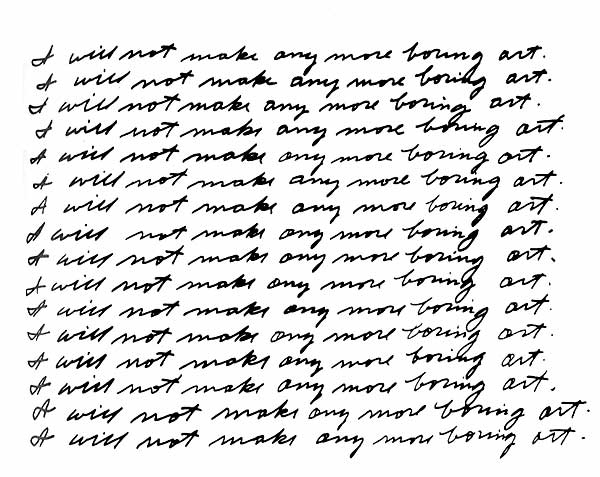 I will not make any more boring art.
I will not make any more boring art.
I will not make any more boring art.
I will not make any more boring art.
I will not make any more boring art.
I will not make any more boring art.
I will not make any more boring art.
I will not make any more boring art.
I will not make any more boring art.
I will not make any more boring art.
I will not make any more boring art.
I will not make any more boring art.
I will not make any more boring art.
I will not make any more boring art.
I will not make any more boring art.
I will not make any more boring art.